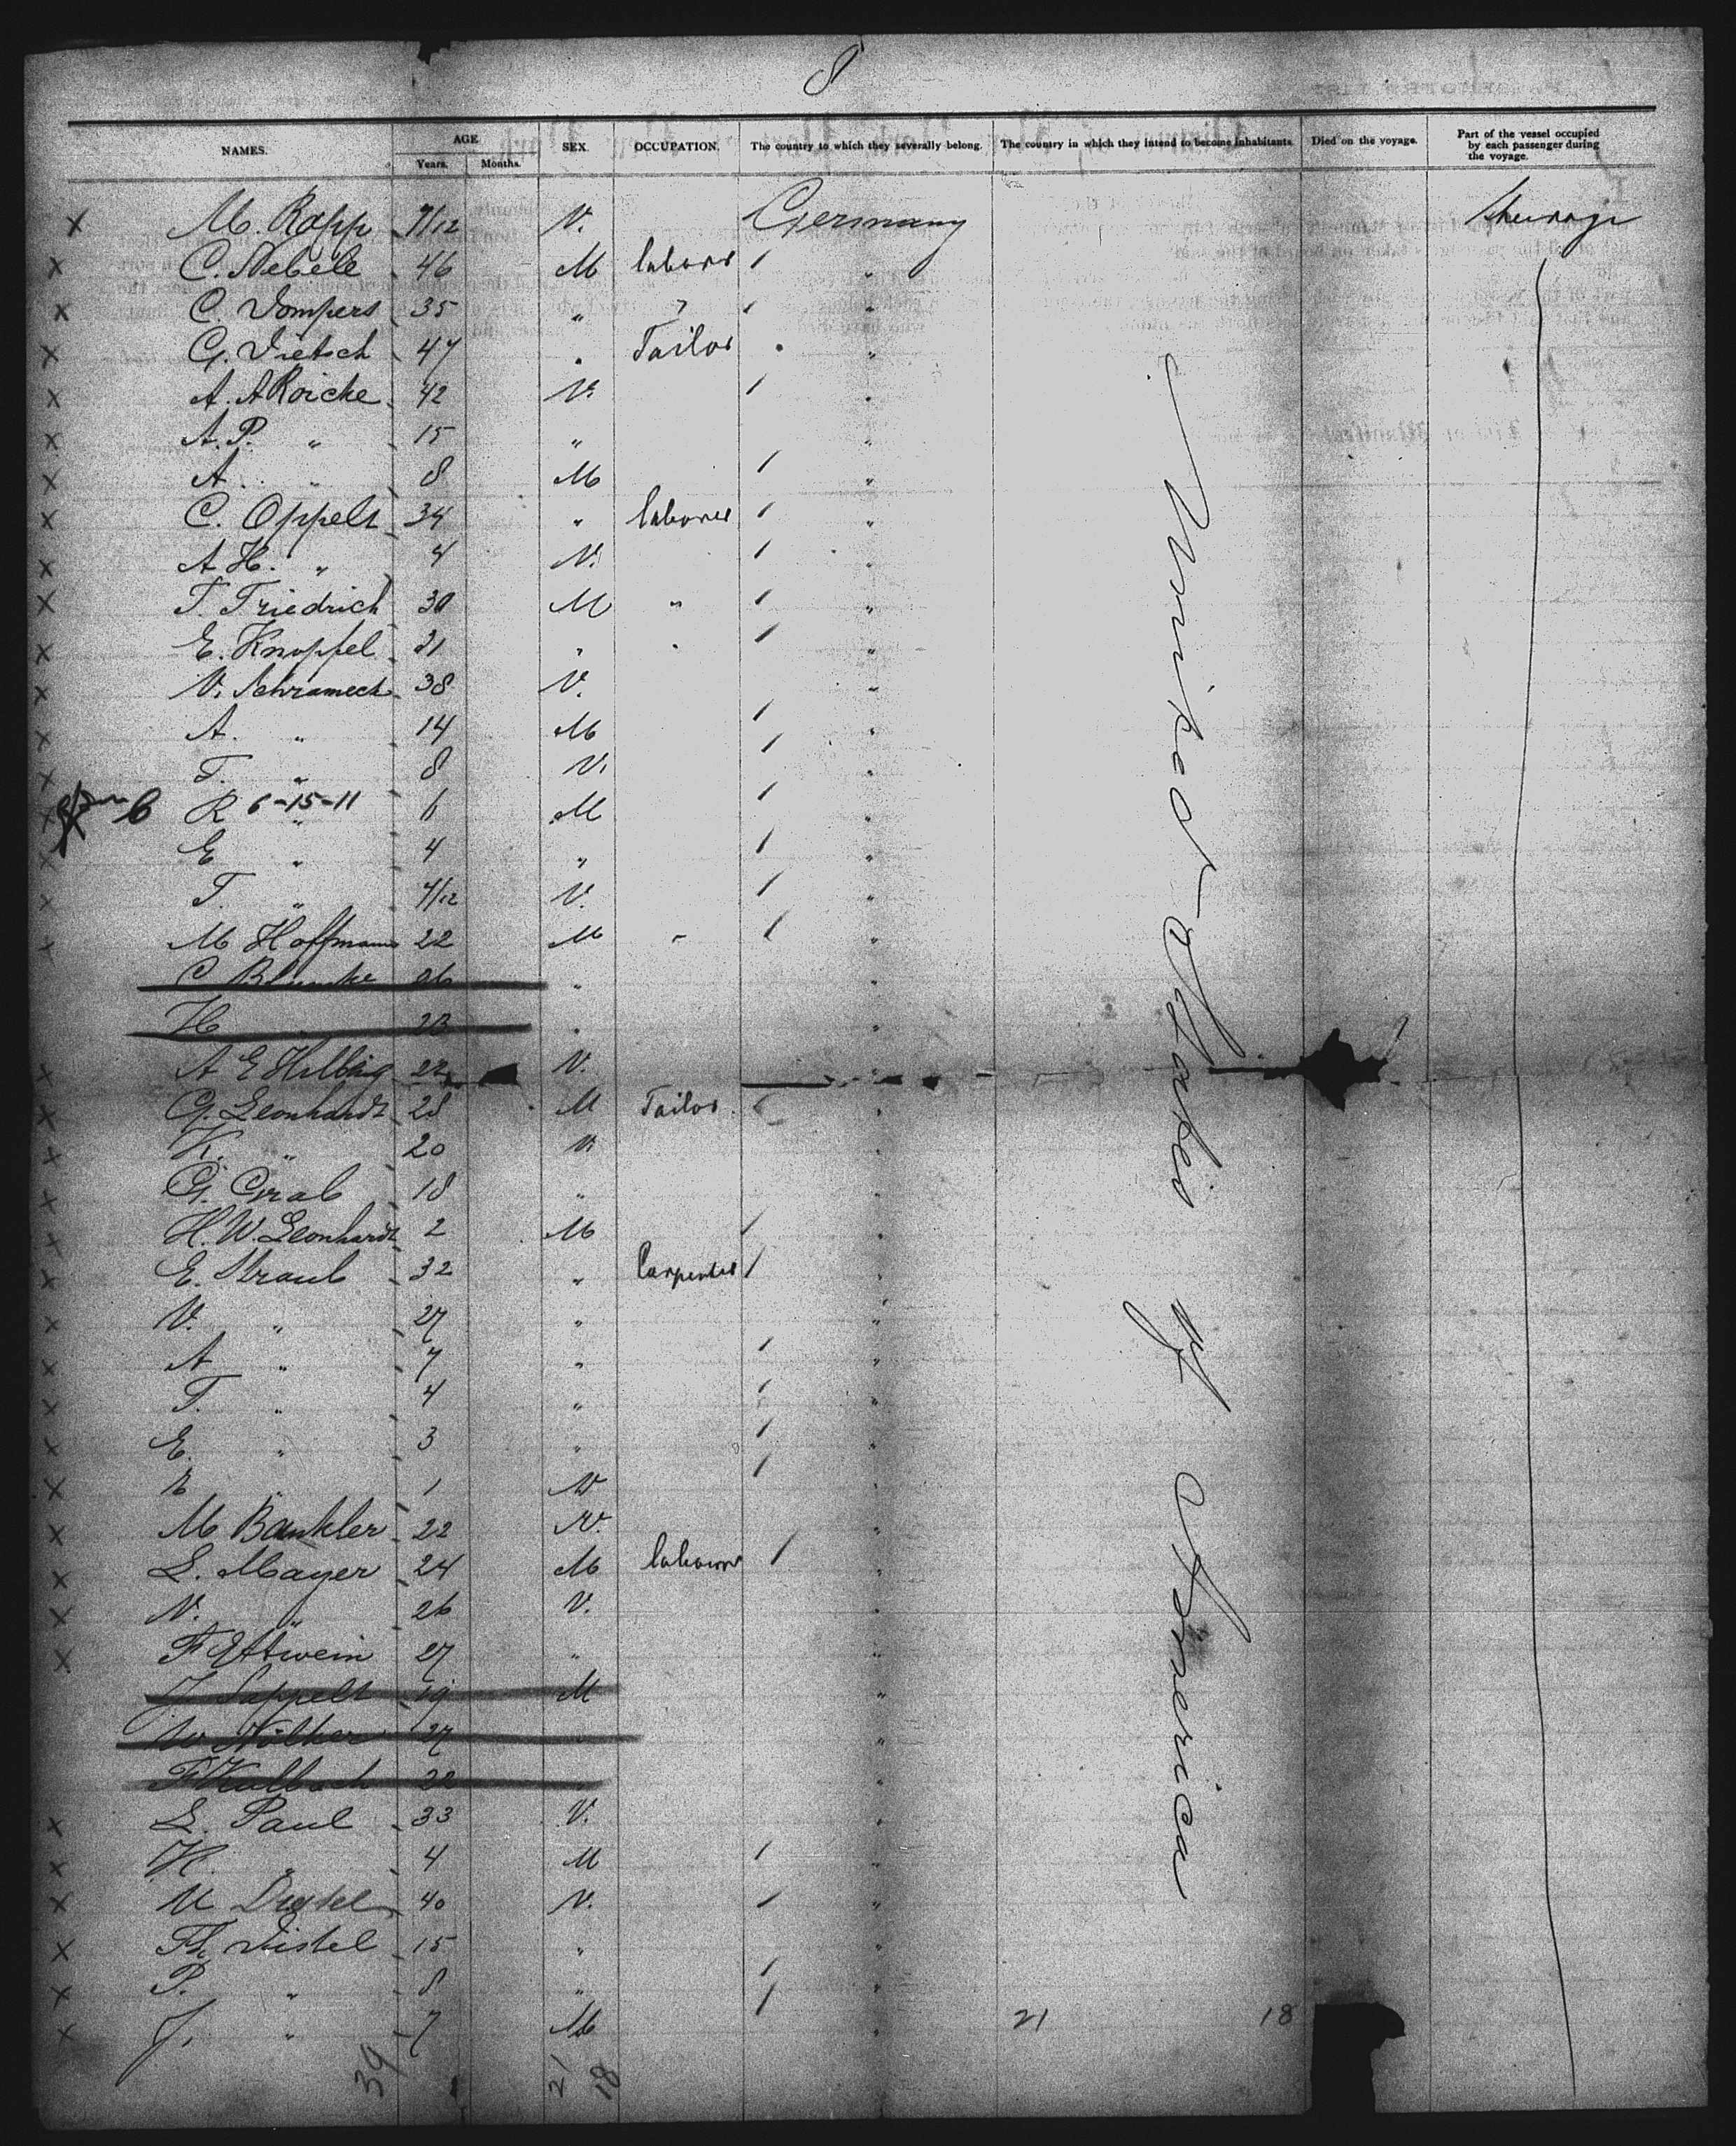 8
NAMES. AGE Years. Months. SEX. OCCUPATION. The country to which they severally belong. The country in which they intend to become inhabitants. Died on the voyage. Part of the vessel occupied by each passenger during the voyage.
x M. Rapp 7/12 V. Germany
x C. Nebele 46 M labore / "
x C. Dompers 35 " " / "
x G. Dietsch 47 " Tailor "
x A. A Roicke 42 V. / "
x A. P. " 15 " "
x A. " 8 M / "
x C. Oppelt 34 " laborer / "
x A H. " 4 V. / "
x F. Friedrich 30 M " / "
x E. Knopfel 21 " " / "
x V. Schrameck 38 V. "
x A. " 14 M / "
x F. " 8 V. / "
x 6 R 6-15-11 " 6 M / "
x E " 4 " / "
x T. " 4/12 V. / "
M Hoffmann 22 M " / "
C 26 " "
H " 23 " "
x A E Helbig 22 V. "
x G. Leonhardt 28 M Tailor "
x K. " 20 V. "
x G. Grab 18 "
x H. W. Leonhardt 2 M / "
x E. Straub 32 " Carpenter / "
x V. " 27 " "
x A " 7 " / "
x T. " 4 " / "
x E. " 3 " / "
x E " 1 / "
x M Bankler 22 V. "
x L. Mayer 24 M / "
x N. " 26 V. "
x F Ettwein 27 " "
J Sappelt 19 M "
W Nölker 27 "
F Kalbach 22 "
x L. Paul 33 V. "
x H. " 4 M / "
x M Distel 40 V. / "
x Distel 15 " "
x P. " 8 " / "
x J. " 7 M / "
United States of America
21 18
39 21 18